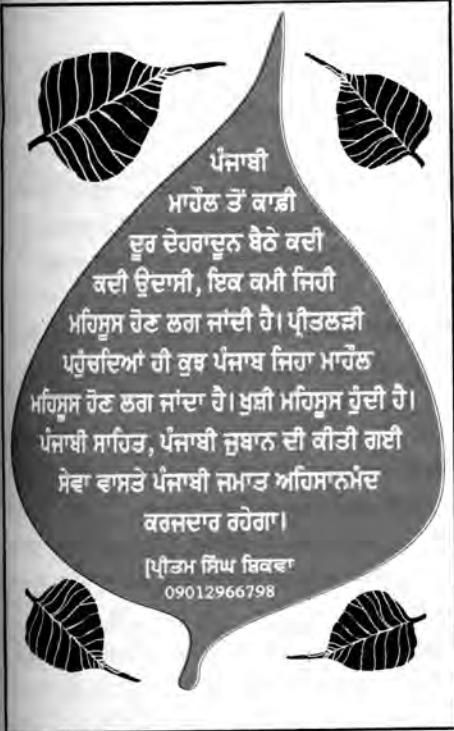 ਪੰਜਾਬੀ
ਮਾਹੌਲ ਤੋਂ ਕਾਫ਼ੀ
ਦੂਰ ਦੇਹਰਾਦੂਨ ਬੈਠੇ ਕਦੀ
ਕਦੀ ਉਦਾਸੀ, ਇਕ ਕਮੀ ਜਿਹੀ
ਮਹਿਸੂਸ ਹੋਣ ਲਗ ਜਾਂਦੀ ਹੈ। ਪ੍ਰੀਤਲੜੀ
ਪਹੁੰਚਦਿਆਂ ਹੀ ਕੁਝ ਪੰਜਾਬ ਜਿਹਾ ਮਾਹੌਲ
ਮਹਿਸੂਸ ਹੋਣ ਲਗ ਜਾਂਦਾ ਹੈ। ਖੁਸ਼ੀ ਮਹਿਸੂਸ ਹੁੰਦੀ ਹੈ।
ਪੰਜਾਬੀ ਸਾਹਿਤ, ਪੰਜਾਬੀ ਜ਼ੁਬਾਨ ਦੀ ਕੀਤੀ ਗਈ
ਸੇਵਾ ਵਾਸਤੇ ਪੰਜਾਬੀ ਜਮਾਤ ਅਹਿਸਾਨਮੰਦ
ਕਰਜਦਾਰ ਰਹੇਗਾ।
[ਪ੍ਰੀਤਮ ਸਿੰਘ ਸ਼ਿਕਵਾ
09012966798